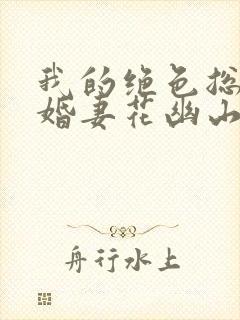 我的绝色总
婚妻花幽山
舟行水上